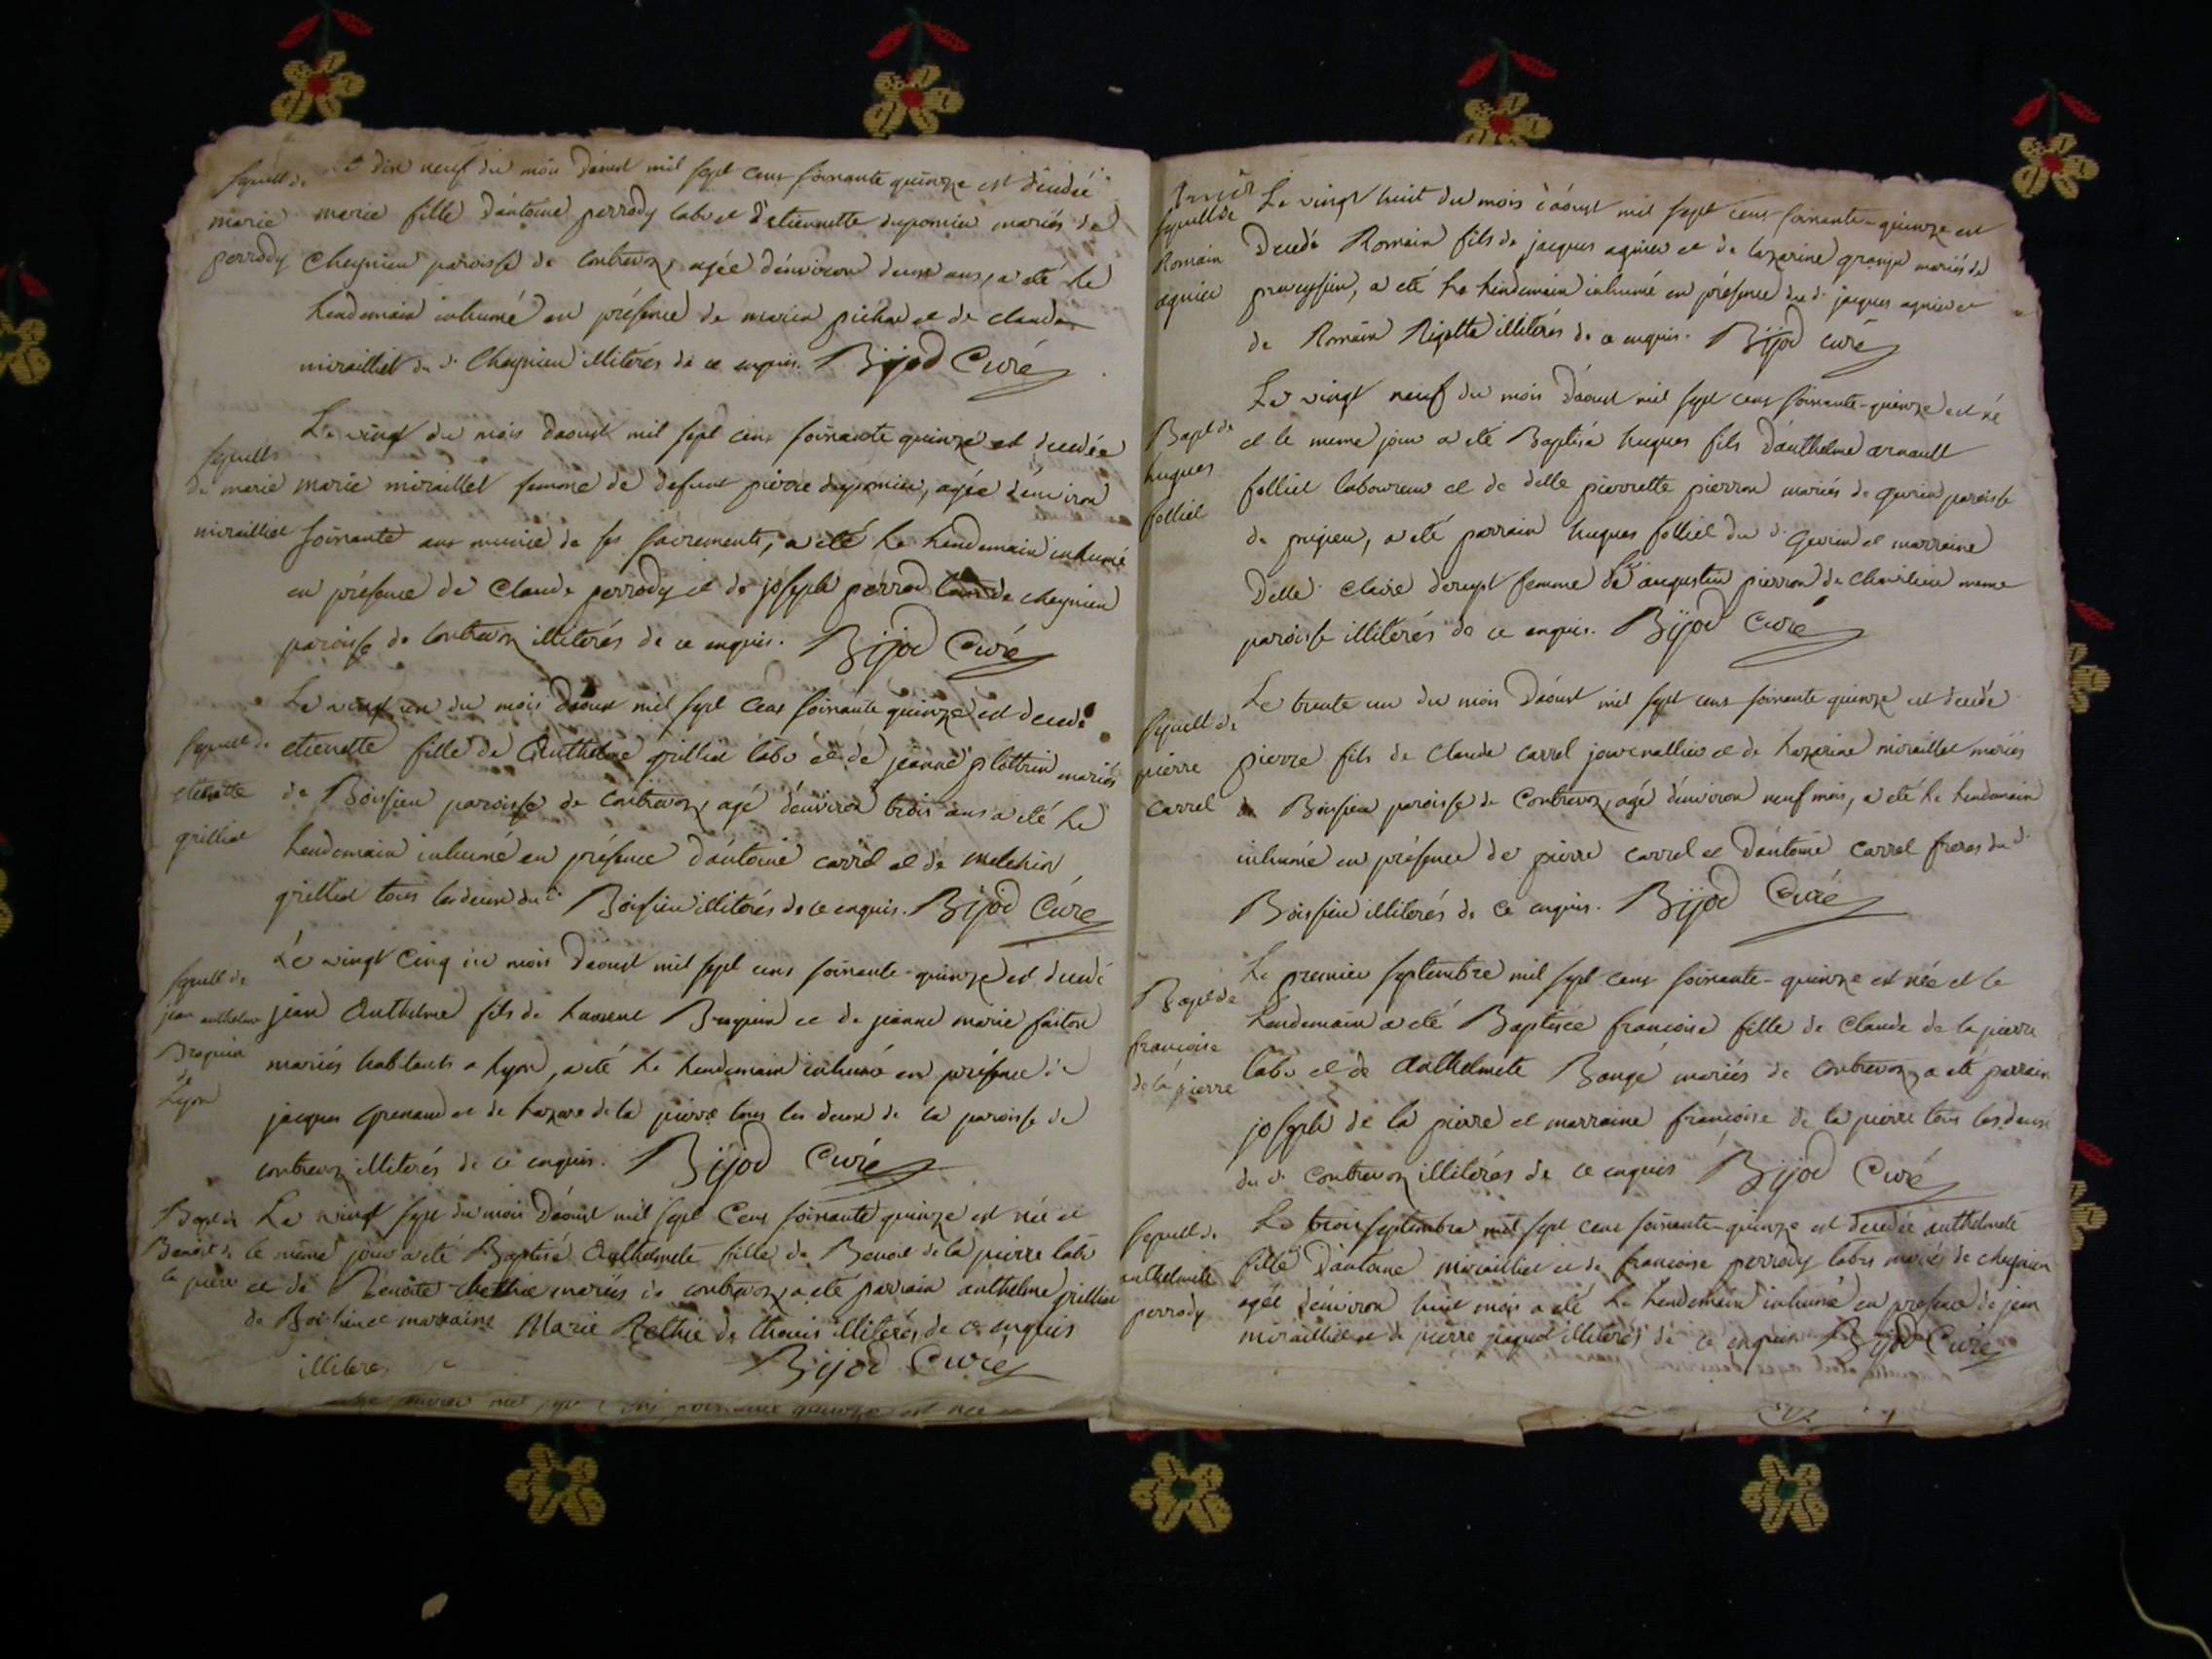 sepult de
marie
perrody
dix neuf du mois d'aoust mil sept cens soixante quinze est décédée
marie fille d'antoine perrody labr et d'etiennette duponin mariés de
Cheynieu paroisse de Contrevoz, agée d'environ deux ans, a eté le
lendemain inhumé en présence de et de claude
mirailliet du d. Cheynieu illiterés de ce enquis. Bijod Curé
sepult
de marie
mirailliet
Le vingt du mois d'aoust mil sept cens soixante quinze est décédée
marie miraillet femme de défunt pierre agée d'environ
soixante ans munie de ses sacrements, a eté le lendemain inhumé
en présence de Claude perrody et de joseph perrod de cheynieu
paroisse de Contrevoz illiterés de ce enquis. Bijod Curé
sepult de
etienette
grilliet
Le vingt un du mois d'aoust mil sept cens soixante quinze est decedé
etienette fille de Anthelme grilliet labr et de jeanne plottrin mariés
de Boissieu paroisse de Contrevoz, agé d'environ trois ans a eté le
lendemain inhumé en présence d'antoine carrel et de melchior
grilliet tous les deux du d. Boissieu illiterés de ce enquis. Bijod Curé
sepult de
jean anthelme
Braquin
de
Lyon
Le vingt cinq du mois d'aoust mil sept cens soixante-quinze est decedé
jean Anthelme fils de laurent et de jeanne marie faiton
mariés habitants a lyon, a eté le lendemain inhumé en présence de
jacques grenand et de lazare de la pierre tous les deux de la paroisse de
contrevoz illiterés de ce enquis. Bijod Curé
Bapt de
Benoit de
la pierre
Le vingt sept du mois d'aoust mil sept cens soixante quinze est née et
le même jour a eté Baptisé Anthelmete fille de Benoit de la pierre labr
et de Benoite mariés de contrevoz, a eté parrain anthelme grilliet
de et marraine Marie Rethie de thouis illiterés de ce enquis
illiterés Bijod Curé
sepult de
Romain
agniev
Le vingt huit du mois d'aoust mil sept cens soixante-quinze est
Decedé Romain fils de jacques agnieu et de lazarine grange mariés de
a eté le lendemain inhumé en présence du d. jacques agnieu et
de Romain Rigotte illiterés de ce enquis. Bijod curé
Bapt de
hugues
folliet
Le vingt neuf du mois d'aoust mil sept cens soixante-quinze est né
et le même jour a eté Baptisé hugues fils d'anthelme arnault
folliet laboureur et de delle pierrette pierron mariés de paroisse
de pugieu, a eté parrain hugues folliet du d. et marraine
Delle Claire femme de sr augustin pierron de meme
paroisse illiterés de ce enquis. Bijod Curé
Sepult de
pierre
Carrel
Le trente un du mois d'aoust mil sept cens soixante quinze est decedé
pierre fils de Claude carrel journallier et de lazarine miraillet mariés
de Boissieu paroisse de Contrevoz, agé d'environ neuf mois, a eté le lendemain
inhumé en présence de pierre carrel et d'antoine carrel freres du d.
Boissieu illiterés de ce enquis. Bijod Curé
Bapt de
francoise
de la pierre
Le premier septembre mil sept cens soixante-quinze est née et le
lendemain a eté Baptisée francoise fille de Claude de la pierre
labr et de Anthelmete Bangé mariés de Contrevoz, a eté parrain
joseph de la pierre et marraine francoise de la pierre tous les deux
du d. Contrevoz illiterés de ce enquis Bijod Curé
sepult de
anthelmete
perrody
Le trois septembre mil sept cens soixante-quinze est decedée anthelmete
fille d'antoine mirailliet et de francoise perrody labrs mariés de cheynieu
agée d'environ huit mois a eté le lendemain inhumé en présence de jean
mirailliet et de pierre jaquet illiterés de ce enquis Bijod Curé